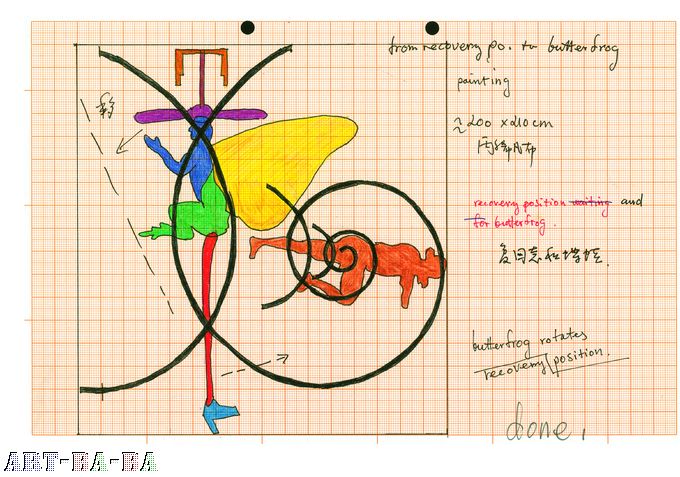 from recovery po. to butterfrog
painting
≈ 200 x 210cm
移
recovery position waiting and
for butterfrog.
butterfrog rotates
recovery position.
done.
ART-BA-BA